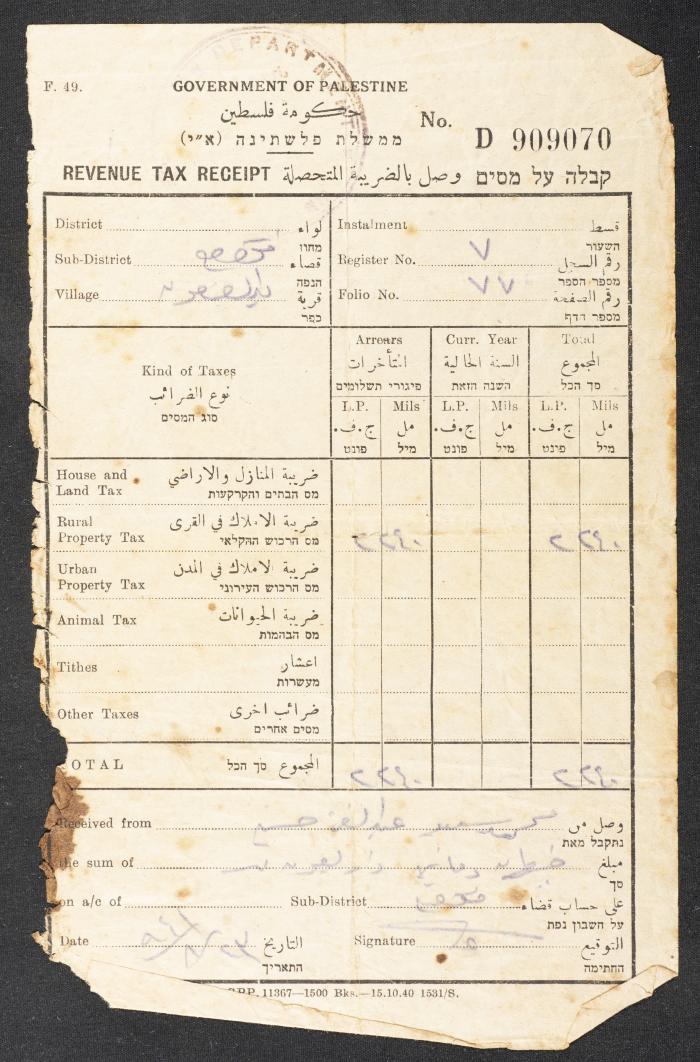 DEPARTMENT
F. 49.
GOVERNMENT OF PALESTINE
حكومة فلسطين
ממשלת פלשתינה (א״י)
No. D 909070
REVENUE TAX RECEIPT وصل بالضريبة المتحصلة קבלה על מסים
District لواء
מחוז
Sub-District قضاء
הנפה
Village قرية
כפר
Instalment قسط
השעור
Register No. ٧ رقم السجل
מספר הספר
Folio No. ٧٧ رقم الصفحة
מספר הדף
Kind of Taxes
نوع الضرائب
סוג המסים
Arrears Curr. Year Total
المتأخرات السنة الحالية المجموع
פיגורי תשלומים השנה הזאת סך הכל
L.P. Mils L.P. Mils L.P. Mils
ج.ف. مل ج.ف. مل ج.ف. مل
פונט מיל פונט מיל פונט מיל
House and Land Tax ضريبة المنازل والاراضي
מס הבתים והקרקעות
Rural Property Tax ضريبة الاملاك في القرى
מס הרכוש החקלאי
٢ ٢٤٠ ٢ ٢٤٠
Urban Property Tax ضريبة الاملاك في المدن
מס הרכוש העירוני
Animal Tax ضريبة الحيوانات
מס הבהמות
Tithes اعشار
מעשרות
Other Taxes ضرائب اخرى
מסים אחרים
TOTAL المجموع סך הכל
٢ ٢٤٠ ٢ ٢٤٠
Received from وصل من
נתקבל מאת
the sum of مبلغ
סך
on a/c of Sub-District على حساب قضاء
על חשבון נפת
Date التاريخ
התאריך
Signature التوقيع
החתימה
GPP. 11367—1500 Bks.—15.10.40 1531/S.